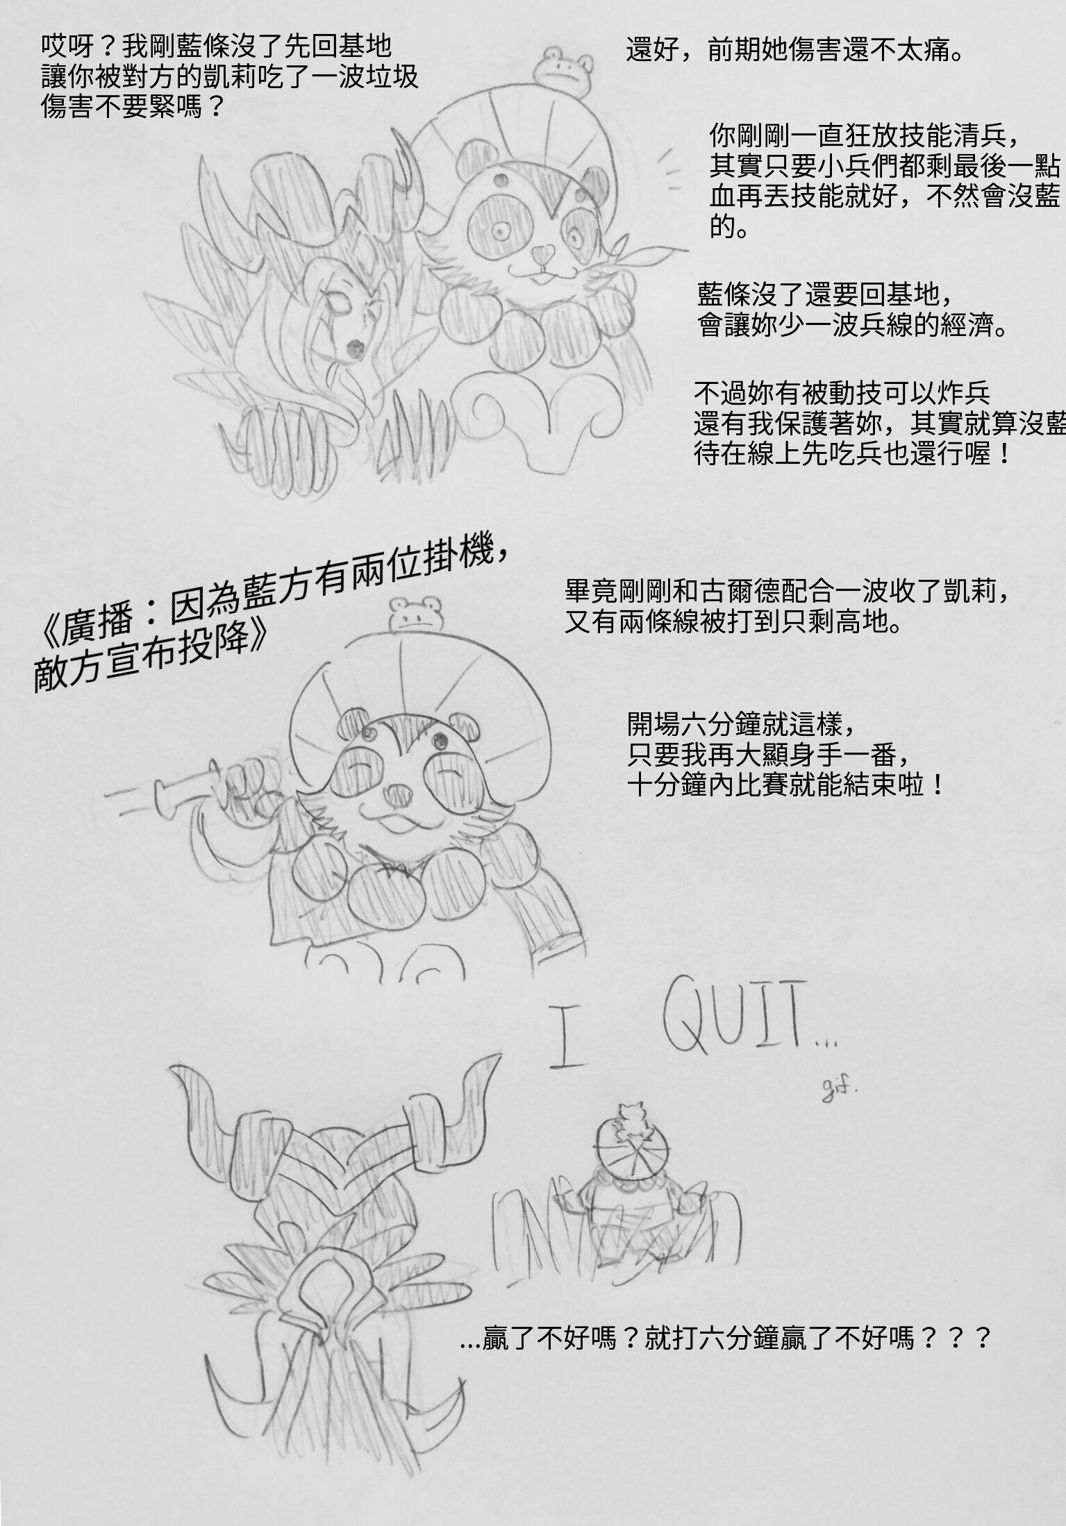 哎呀？我剛藍條沒了先回基地
讓你被對方的凱莉吃了一波垃圾
傷害不要緊嗎？
還好，前期她傷害還不太痛。
你剛剛一直狂放技能清兵，
其實只要小兵們都剩最後一點
血再丟技能就好，不然會沒藍
的。
藍條沒了還要回基地，
會讓妳少一波兵線的經濟。
不過妳有被動技可以炸兵
還有我保護著妳，其實就算沒藍
待在線上先吃兵也還行喔！
《廣播：因為藍方有兩位掛機，
敵方宣布投降》
畢竟剛剛和古爾德配合一波收了凱莉，
又有兩條線被打到只剩高地。
開場六分鐘就這樣，
只要我再大顯身手一番，
十分鐘內比賽就能結束啦！
I QUIT...
gif.
...贏了不好嗎？就打六分鐘贏了不好嗎？？？